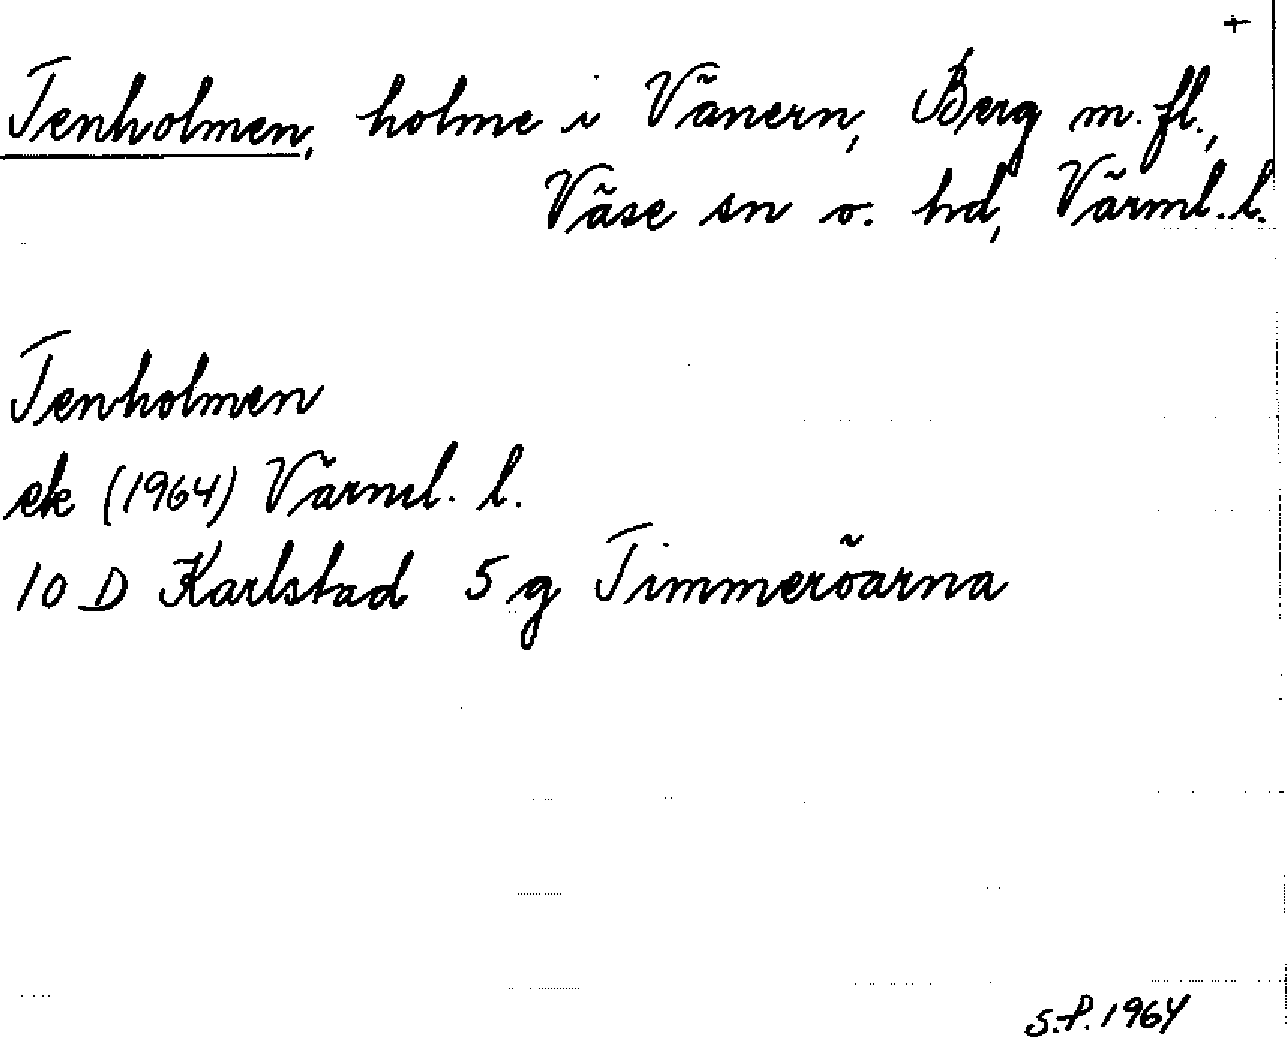 +
Tenholmen, holme i Vänern, Berg m. fl.,
Väse sn o. hd, Värml. l.
Tenholmen
ek (1964) Värml. l.
10 D Karlstad 5 g Timmeröarna
S.P. 1964